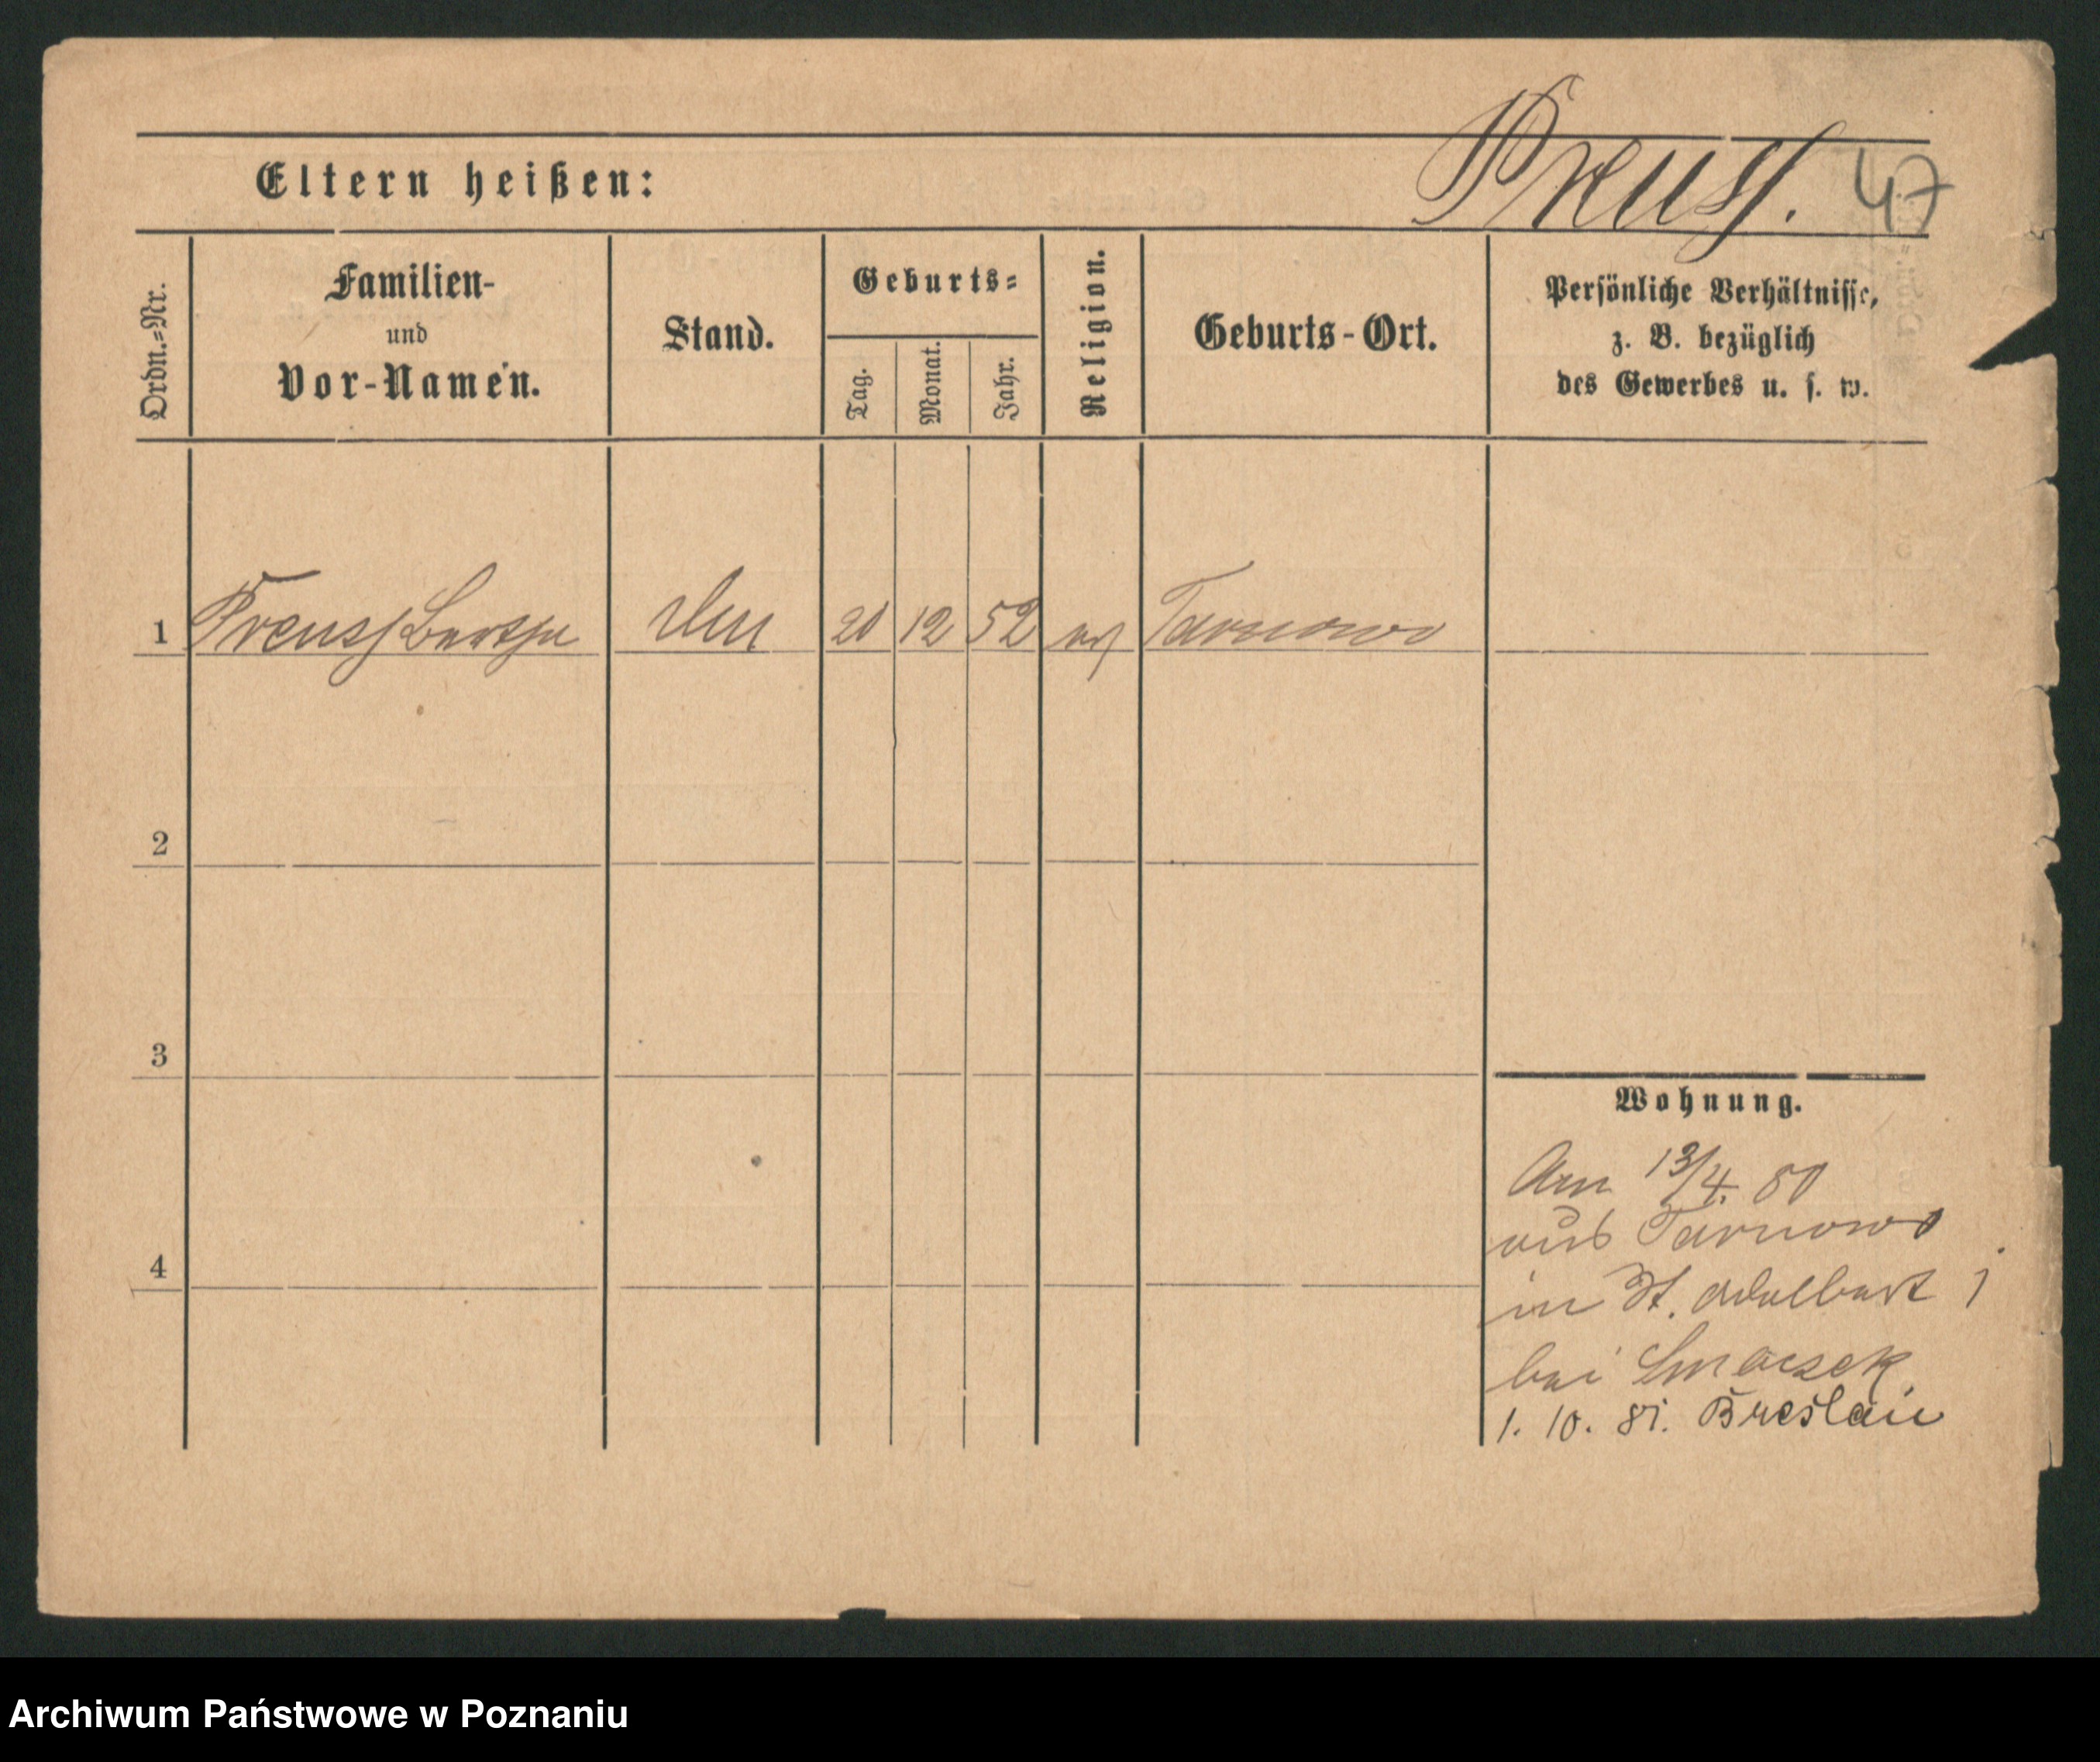 Preuss. 47
Eltern heißen:
Ordn.=Nr.
Familien-
und
Vor-Namen.
Stand.
Geburts=
Tag.
Monat.
Jahr.
Religion.
Geburts-Ort.
Persönliche Verhältnisse,
z. B. bezüglich
des Gewerbes u. s. w.
1 Preuss Bertha 20 12 52 Tarnowo
2
3
4
Wohnung.
Am 13/4. 80
aus Tarnowo
in St. Adalbert 1
bei Smaczek
1. 10. 81. Breslau
Archiwum Państwowe w Poznaniu